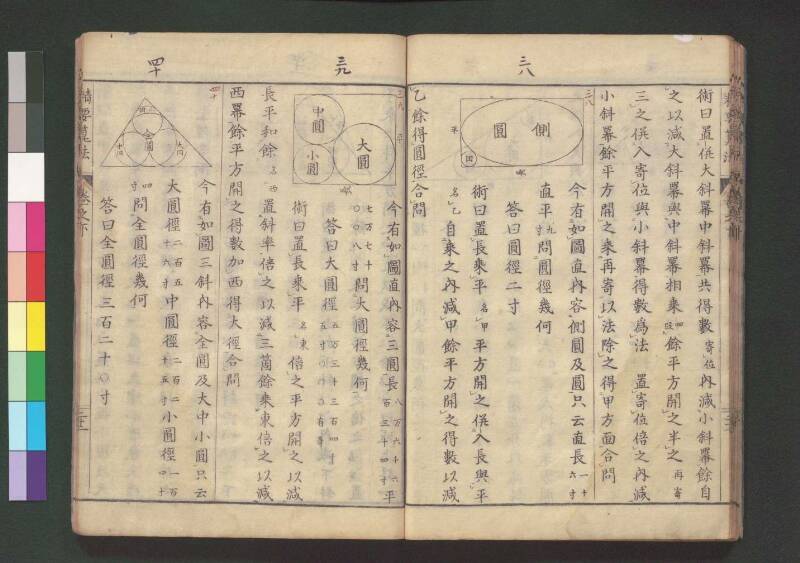 三八
術曰置併大斜冪中斜冪共得數寄位內減小斜冪餘自
之以減大斜冪與中斜冪相乘四段餘平方開之半之再寄
三之併入寄位與小斜冪得數爲法 置寄位倍之內減
小斜冪餘平方開之乘再寄以法除之得甲方面合問
三八
側圓
圓
平
長
今有如圖直內容側圓及圓只云直長一十六寸
直平九寸問圓徑幾何
答曰圓徑二寸
術曰置長乘平名甲平方開之併入長與平
名乙自乘之內減甲餘平方開之得數以減
乙餘得圓徑合問
三九
三九
平
中圓
大圓
小圓
長
今有如圖直內容三圓長八万六十六百三十四寸平
七万七十〇〇八寸問大圓徑幾何
答曰大圓徑五万三十三百四十五寸
術曰置長乘平名東倍之平方開之以減
長平和餘名西置斜率倍之以減三箇餘乘東倍之以減
西冪餘平方開之得數加西得大徑合問
四十
四十
小円
全圓
中円
大円
今有如圖三斜內容全圓及大中小圓只云
大圓徑二百五十六寸中圓徑二百二十五寸小圓徑一百四十
四寸問全圓徑幾何
答曰全圓徑三百二十〇寸